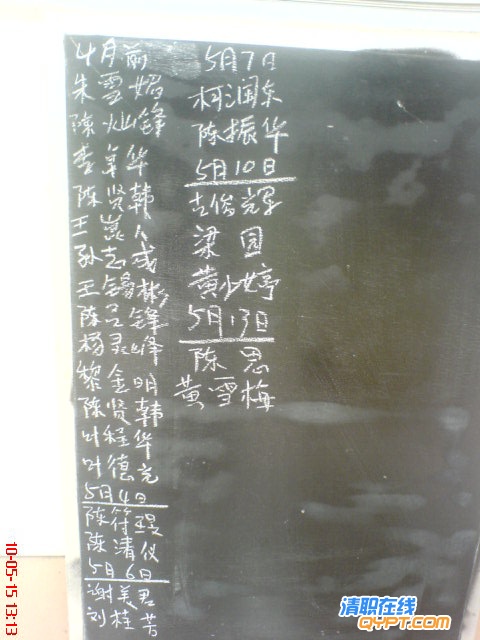 4月前
朱雪媚
陈灿锋
李卓华
陈贤韩
王嵩人
孙志成
王锦彬
陈吕锋
杨灵峰
黎金明
陈贤韩
叶程华
叶德光
5月4日
陈符琨
陈清仪
5月6日
谢美君
刘桂芳
5月7日
柯润东
陈振华
5月10日
古俊辉
梁园
黄少婷
5月13日
陈思
黄雪梅
10-05-15 13:13
清职在线
QYPT.COM